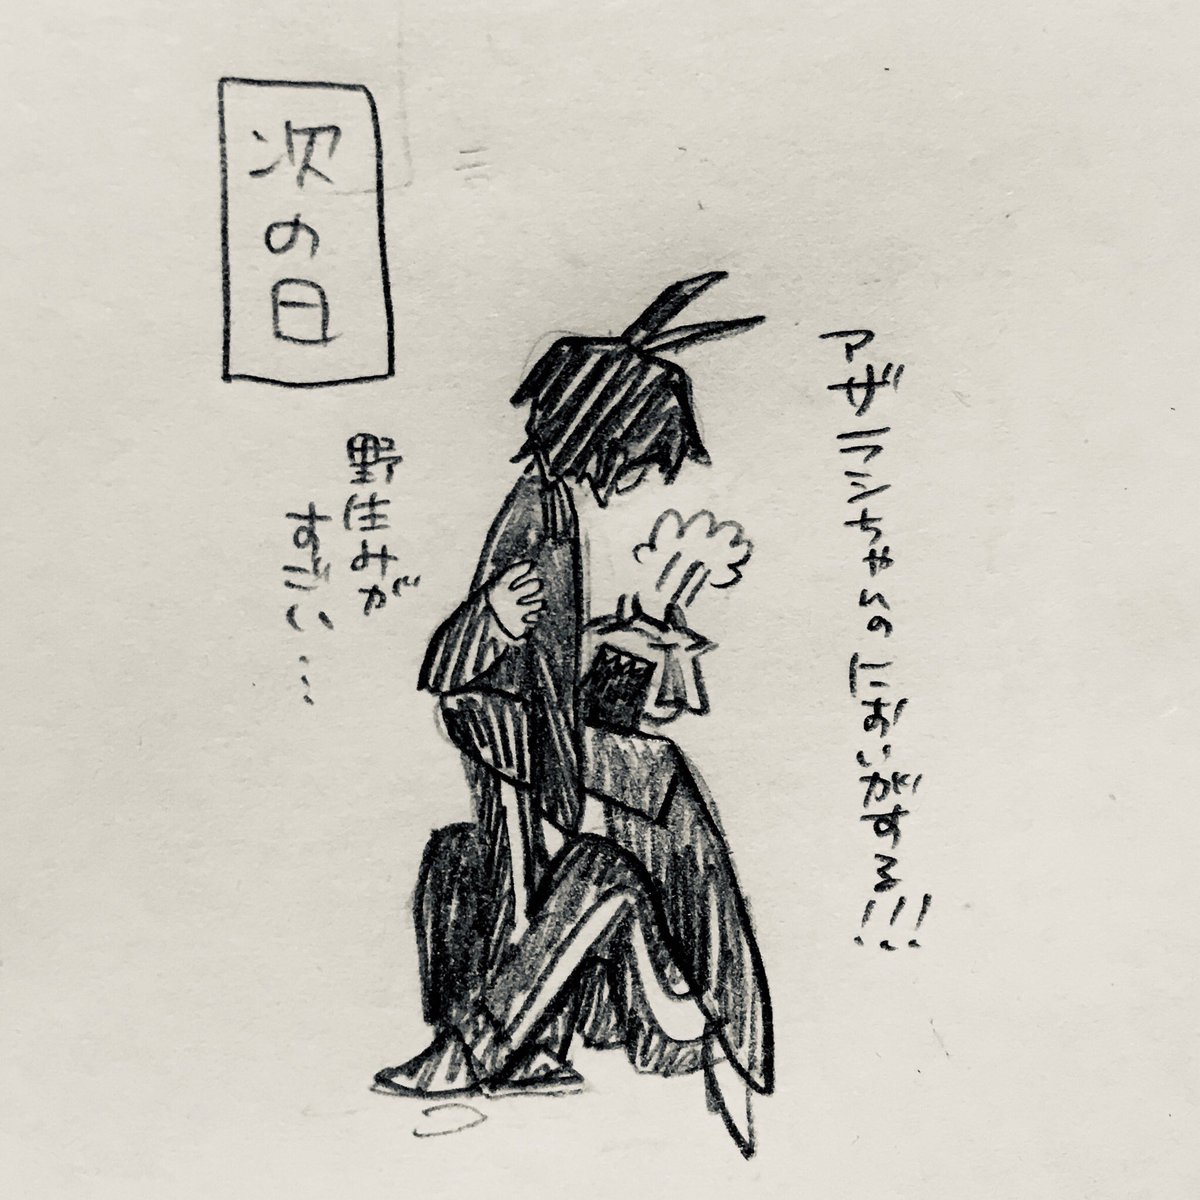 次の日
アザラシちゃんのにおいがする!!!
野生みが
すごい…